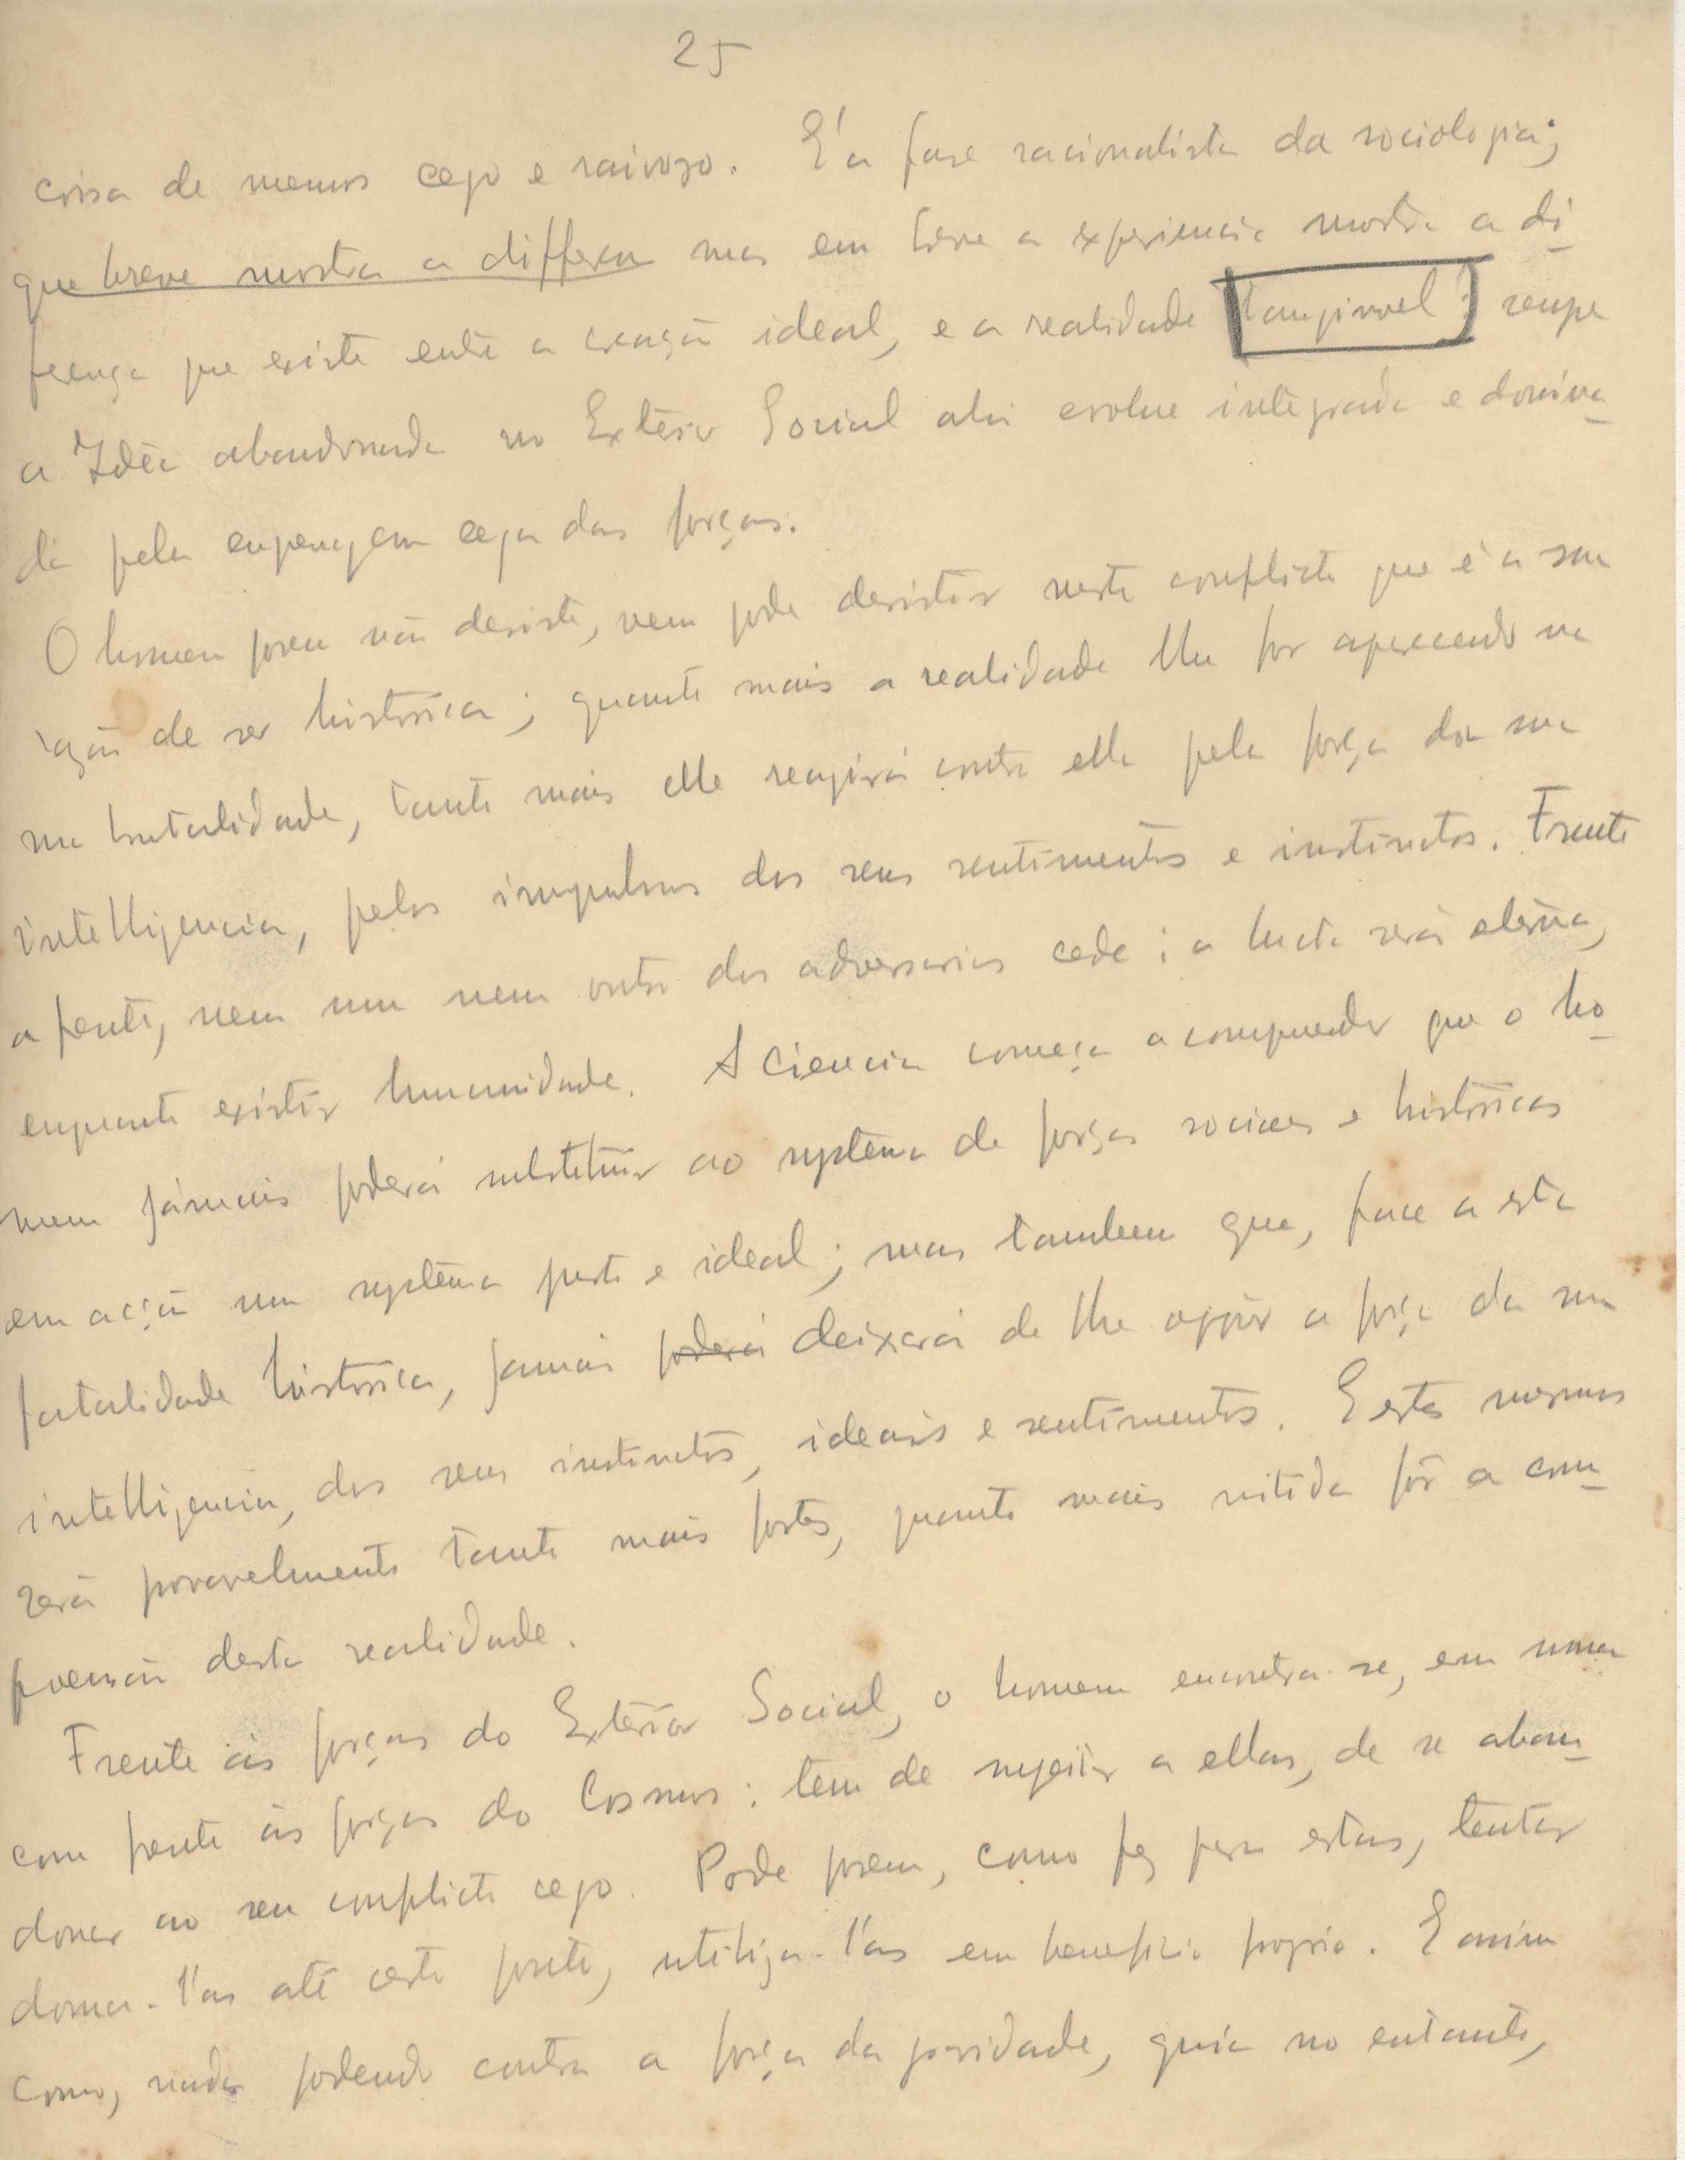 25
coisa de menos cego e raivoso. E' a fase racionalista da sociologia;
que breve mostra a differen mas em breve a experiencia mostra a di-
ferença que existe entre a creação ideal, e a realidade tangivel:
a Idéa abandonada no Exterior Social ahi evolue integrada e domina-
da pela engrenagem cega das forças.
O homem porem não desiste, nem pode desistir neste conflicto que é a sua
razão de ser historica; quanto mais a realidade lhe for aparecendo na
sua brutalidade, tanto mais elle reagirá contra ella pela força da sua
intelligencia, pelos impulsos dos seus sentimentos e instinctos. Frente
a frente, nem um nem outro dos adversarios cede; a lucta será eterna,
enquanto existir humanidade. A Ciencia começa a compreender que o ho-
mem jámais poderá substituir ao systema de forças sociaes e historicas
em acção um systema justo e ideal; mas tambem que, face a esta
fatalidade historica, jamais poderá deixará de lhe oppôr a força da sua
intelligencia, dos seus instinctos, ideais e sentimentos. E estes mesmos
será provavelmente tanto mais fortes, quanto mais nitida fôr a com-
preensão desta realidade.
Frente ás forças do Exterior Social, o homem encontra-se, em uma
com frente ás forças do Cosmos: tem de sugeitar a ellas, de se aban-
donar ao seu conflicto cego. Pode porem, como fez para estas, tentar
doma-l'as até certo ponto, utiliza-l'as em beneficio proprio. E assim
como, nada podendo contra a força da gravidade, guia no entanto,